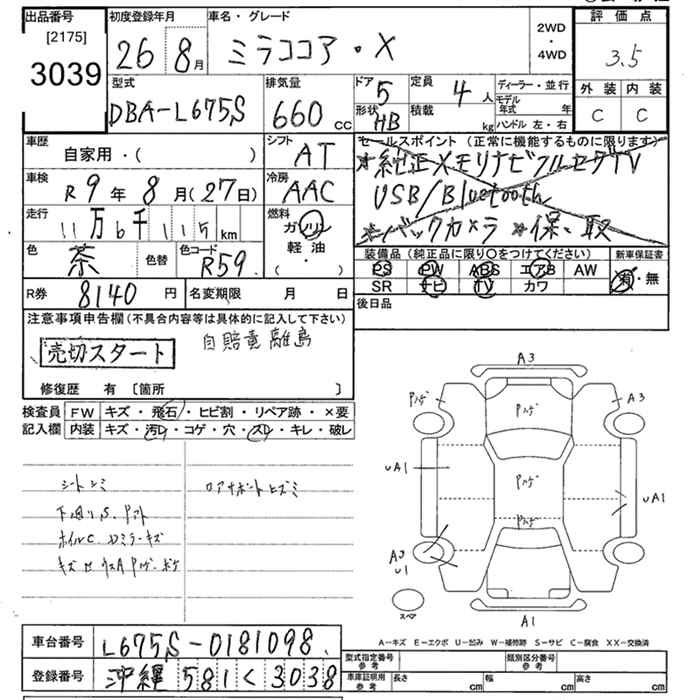 出品番号 初度登録年月 車名・グレード 評価点
[2175] 3039
26 8月 ミラココア・X 2WD・4WD 3.5
型式 排気量 ドア 定員 ディーラー・並行 外装 内装
DBA-L675S 660cc 5 4人 モデル年式 年 C C
形状 HB 積載 kg ハンドル 左・右
車歴 シフト セールスポイント (正常に機能するものに限ります)
自家用・( ) AT *純正メモリナビフルセグTV
車検 R9年8月(27日) 冷房 AAC USB/Bluetooth
走行 11万6千115km 燃料 ガソリン *バックカメラ *保、取
軽油
色 茶 色替 色コード R59 ( ・ )
装備品 (純正品に限り○をつけてください) 新車保証書
PS PW ABS エアB AW 有・無
SR ナビ TV カワ
R券 8140円 名変期限 月 日 後日品
注意事項申告欄 (不具合内容等は具体的に記入して下さい)
売切スタート 自賠責離島
修復歴 有 〔箇所 〕
検査員 FW キズ・飛石・ヒビ割・リペア跡・×要
記入欄 内装 キズ・汚レ・コゲ・穴・スレ・キレ・破レ
シートシミ ロアサポートヒズミ
下回りS.
ホイルC Dミラーキズ
A3
A3
UA1
UA1
A3
U1
スペア
A1
A-キズ E-エクボ U-凹み W-補修跡 S-サビ C-腐食 XX-交換済
車台番号 L675S-0181098
登録番号 沖縄 581 く 3038
型式指定番号 参考 類別区分番号 参考
車庫証明用 参考 長さ cm 幅 cm 高さ cm